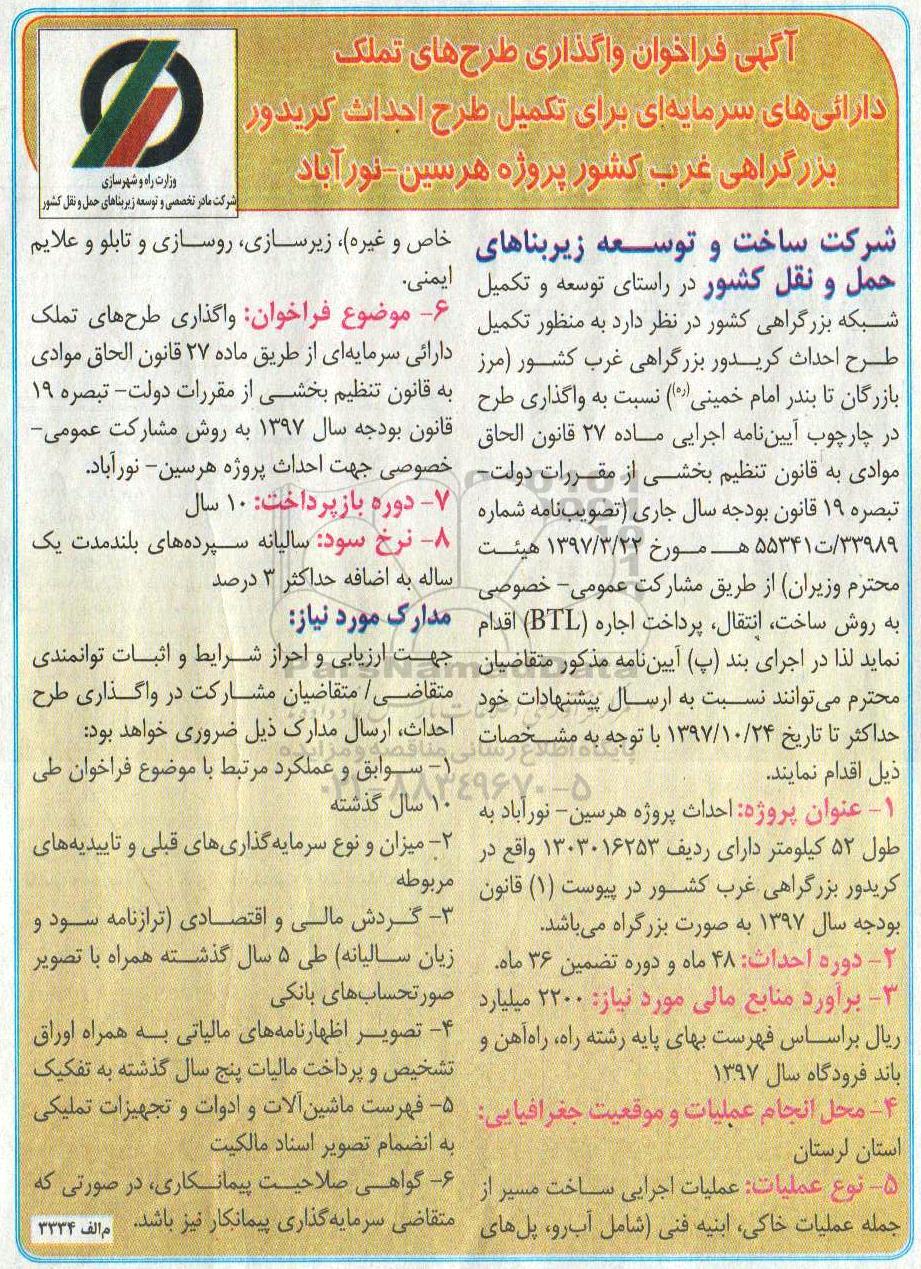 آگهی فراخوان واگذاری طرح‌های تملک
دارائی‌های سرمایه‌ای برای تکمیل طرح احداث کریدور
بزرگراهی غرب کشور پروژه هرسین-نورآباد
وزارت راه و شهرسازی
شرکت مادر تخصصی و توسعه زیربناهای حمل و نقل کشور
شرکت ساخت و توسعه زیربناهای
حمل و نقل کشور در راستای توسعه و تکمیل
شبکه بزرگراهی کشور در نظر دارد به منظور تکمیل
طرح احداث کریدور بزرگراهی غرب کشور (مرز
بازرگان تا بندر امام خمینی(ره)) نسبت به واگذاری طرح
در چارچوب آیین‌نامه اجرایی ماده ۲۷ قانون الحاق
موادی به قانون تنظیم بخشی از مقررات دولت-
تبصره ۱۹ قانون بودجه سال جاری (تصویب‌نامه شماره
۳۳۹۸۹/ت۵۵۳۴۱ هـ مورخ ۱۳۹۷/۳/۲۲ هیئت
محترم وزیران) از طریق مشارکت عمومی- خصوصی
به روش ساخت، انتقال، پرداخت اجاره (BTL) اقدام
نماید لذا در اجرای بند (پ) آیین‌نامه مذکور متقاضیان
محترم می‌توانند نسبت به ارسال پیشنهادات خود
حداکثر تا تاریخ ۱۳۹۷/۱۰/۲۴ با توجه به مشخصات
ذیل اقدام نمایند.
۱- عنوان پروژه: احداث پروژه هرسین- نورآباد به
طول ۵۲ کیلومتر دارای ردیف ۱۳۰۳۰۱۶۲۵۳ واقع در
کریدور بزرگراهی غرب کشور در پیوست (۱) قانون
بودجه سال ۱۳۹۷ به صورت بزرگراه می‌باشد.
۲- دوره احداث: ۴۸ ماه و دوره تضمین ۳۶ ماه.
۳- برآورد منابع مالی مورد نیاز: ۲۲۰۰ میلیارد
ریال براساس فهرست بهای پایه رشته راه، راه‌آهن و
باند فرودگاه سال ۱۳۹۷
۴- محل انجام عملیات و موقعیت جغرافیایی:
استان لرستان
۵- نوع عملیات: عملیات اجرایی ساخت مسیر از
جمله عملیات خاکی، ابنیه فنی (شامل آب‌رو، پل‌های
خاص و غیره)، زیرسازی، روسازی و تابلو و علایم
ایمنی.
۶- موضوع فراخوان: واگذاری طرح‌های تملک
دارائی سرمایه‌ای از طریق ماده ۲۷ قانون الحاق موادی
به قانون تنظیم بخشی از مقررات دولت- تبصره ۱۹
قانون بودجه سال ۱۳۹۷ به روش مشارکت عمومی-
خصوصی جهت احداث پروژه هرسین- نورآباد.
۷- دوره بازپرداخت: ۱۰ سال
۸- نرخ سود: سالیانه سپرده‌های بلندمدت یک
ساله به اضافه حداکثر ۳ درصد
مدارک مورد نیاز:
جهت ارزیابی و احراز شرایط و اثبات توانمندی
متقاضی/ متقاضیان مشارکت در واگذاری طرح
احداث، ارسال مدارک ذیل ضروری خواهد بود:
۱- سوابق و عملکرد مرتبط با موضوع فراخوان طی
۱۰ سال گذشته
۲- میزان و نوع سرمایه‌گذاری‌های قبلی و تاییدیه‌های
مربوطه
۳- گردش مالی و اقتصادی (ترازنامه سود و
زیان سالیانه) طی ۵ سال گذشته همراه با تصویر
صورتحساب‌های بانکی
۴- تصویر اظهارنامه‌های مالیاتی به همراه اوراق
تشخیص و پرداخت مالیات پنج سال گذشته به تفکیک
۵- فهرست ماشین‌آلات و ادوات و تجهیزات تملیکی
به انضمام تصویر اسناد مالکیت
۶- گواهی صلاحیت پیمانکاری، در صورتی که
متقاضی سرمایه‌گذاری پیمانکار نیز باشد.
م‌الف ۳۳۳۴
ParsNamadData
پایگاه اطلاع رسانی مناقصه و مزایده
۰۲۱-۸۸۳۴۹۶۷۰-۵